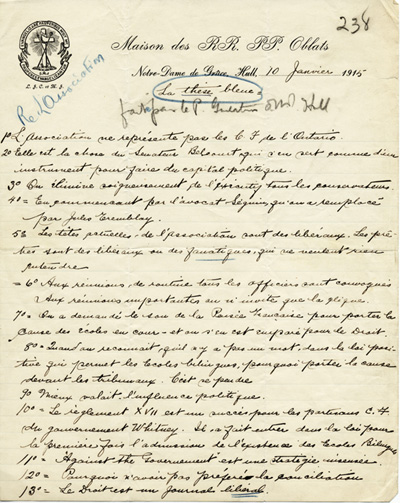 238
Maison des RR. PP. Oblats
Notre-Dame de Grâce, Hull, 10 Janvier 1915
Re: L'Association
L.J.C. et M.I.
La thèse bleue
par le P. Guertin OMI Hull
1° L'Association ne représente pas les C. F. de l'Ontario.
2° Elle est la chose du Senateur Belcourt qui s'en sert comme d'un
instrument pour faire du capital politique.
3° On élimine soigneusement de l'exécutif tous les conservateurs.
4° = En commençant par l'avocat Séguin qu'on a remplacé
par Jules Tremblay.
5° Les têtes actuelles de l'association sont des libéraux. Les prê-
tres sont des libéraux ou des fanatiques, qui ne veulent rien
entendre
= 6° Aux réunions de routine tous les officiers sont convoqués
Aux réunions importantes on n'invite que la clique.
7° = On a demandé le sou de la Pensée Française pour porter la
cause des écoles en cour = et on s'en est emparé pour le Droit.
8° = Quand on reconnait qu'il n'y a pas un mot, dans la loi posi-
tive qui permet les Ecoles bilingues, pourquoi porter la cause
devant les tribunaux. C'est se pendre
9° Mieux valait l'influence politique.
10° = Le règlement XVII est un succès pour les partisans C. F.
du gouvernement Whitney. Ils a fait entrer dans la loi pour
la première fois l'admission de l'existence des Ecoles Bilingues
11° = Against the Government est une stratégie insensée.
12° = Pourquoi n'avoir pas préféré la conciliation
13° = Le Droit est un Journal libéral.